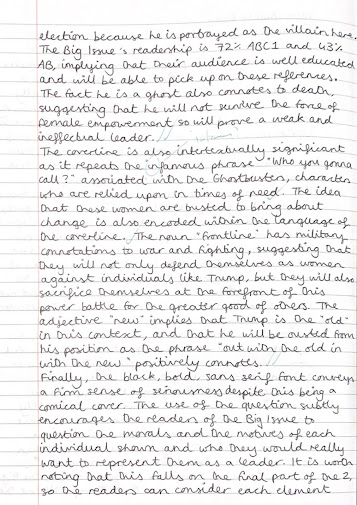 election because he is portrayed as the villain here.
The Big Issue's readership is 72% ABC1 and 43%
AB, implying that their audience is well educated
and will be able to pick up on these references.
The fact he is a ghost also connotes to death,
suggesting that he will not survive the force of
female empowerment so will prove a weak and
ineffectual leader. //
The coverline is also intertextually significant
as it repeats the infamous phrase "Who you gonna
call?" associated with the Ghostbusters, characters
who are relied upon in times of need. The idea
that these women are trusted to bring about
change is also encoded within the language of
the coverline. The noun "frontline" has military
connotations to war and fighting, suggesting that
they will not only defend themselves as women
against individuals like Trump, but they will also
sacrifice themselves at the forefront of this
power battle for the greater good of others. The
adjective "new" implies that Trump is the "old"
in this context, and that he will be ousted from
his position as the phrase "out with the old in
with the new" positively connotes. //
Finally, the black, bold, sans serif font conveys
a firm sense of seriousness despite this being a
comical cover. The use of the question subtly
encourages the readers of the Big Issue to
question the morals and the motives of each
individual shown and who they would really
want to represent them as a leader. It is worth
noting that this falls on the final part of the Z,
so the readers can consider each element